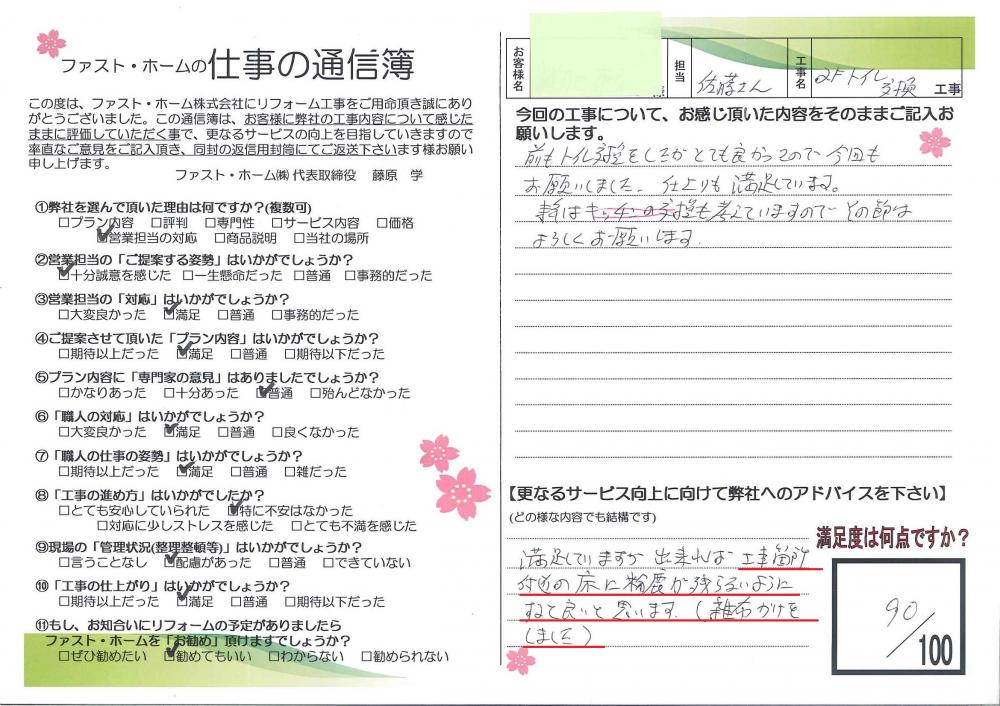 ファスト・ホームの仕事の通信簿
この度は、ファスト・ホーム株式会社にリフォーム工事をご用命頂き誠にあり
がとうございました。この通信簿は、お客様に弊社の工事内容について感じた
ままに評価していただく事で、更なるサービスの向上を目指していきますので
率直なご意見をご記入頂き、同封の返信用封筒にてご返送下さいます様お願い
申し上げます。
ファスト・ホーム㈱ 代表取締役 藤原 学
①弊社を選んで頂いた理由は何ですか?(複数可)
□プラン内容 □評判 □専門性 □サービス内容 □価格
☑営業担当の対応 □商品説明 □当社の場所
②営業担当の「ご提案する姿勢」はいかがでしょうか?
☑十分誠意を感じた □一生懸命だった □普通 □事務的だった
③営業担当の「対応」はいかがでしょうか?
□大変良かった ☑満足 □普通 □事務的だった
④ご提案させて頂いた「プラン内容」はいかがでしょうか?
□期待以上だった ☑満足 □普通 □期待以下だった
⑤プラン内容に「専門家の意見」はありましたでしょうか?
□かなりあった □十分あった ☑普通 □殆んどなかった
⑥「職人の対応」はいかがでしょうか?
□大変良かった ☑満足 □普通 □良くなかった
⑦「職人の仕事の姿勢」はいかがでしょうか?
□期待以上だった ☑満足 □普通 □雑だった
⑧「工事の進め方」はいかがでしたか?
□とても安心していられた ☑特に不安はなかった
□対応に少しストレスを感じた □とても不満を感じた
⑨現場の「管理状況(整理整頓等)」はいかがでしょうか?
□言うことなし ☑配慮があった □普通 □できていない
⑩「工事の仕上がり」はいかがでしょうか?
□期待以上だった ☑満足 □普通 □期待以下だった
⑪もし、お知合いにリフォームの予定がありましたら
ファスト・ホームを「お勧め」頂けますでしょうか?
□ぜひ勧めたい ☑勧めてもいい □わからない □勧められない
お客様名 担当 佐藤さん 工事名 2Fトイレ交換 工事
今回の工事について、お感じ頂いた内容をそのままご記入お
願いします。
前もトイレ交換をしたがとても良かったので今回も
お願いしました。仕上りも満足しています。
キッチンの交換も考えていますのでその節は
よろしくお願いします。
【更なるサービス向上に向けて弊社へのアドバイスを下さい】
(どの様な内容でも結構です)
満足していますが出来れば工事箇所
付近の床に粉塵が残らないように
すると良いと思います。(雑布がけを
しました)
満足度は何点ですか?
90/100